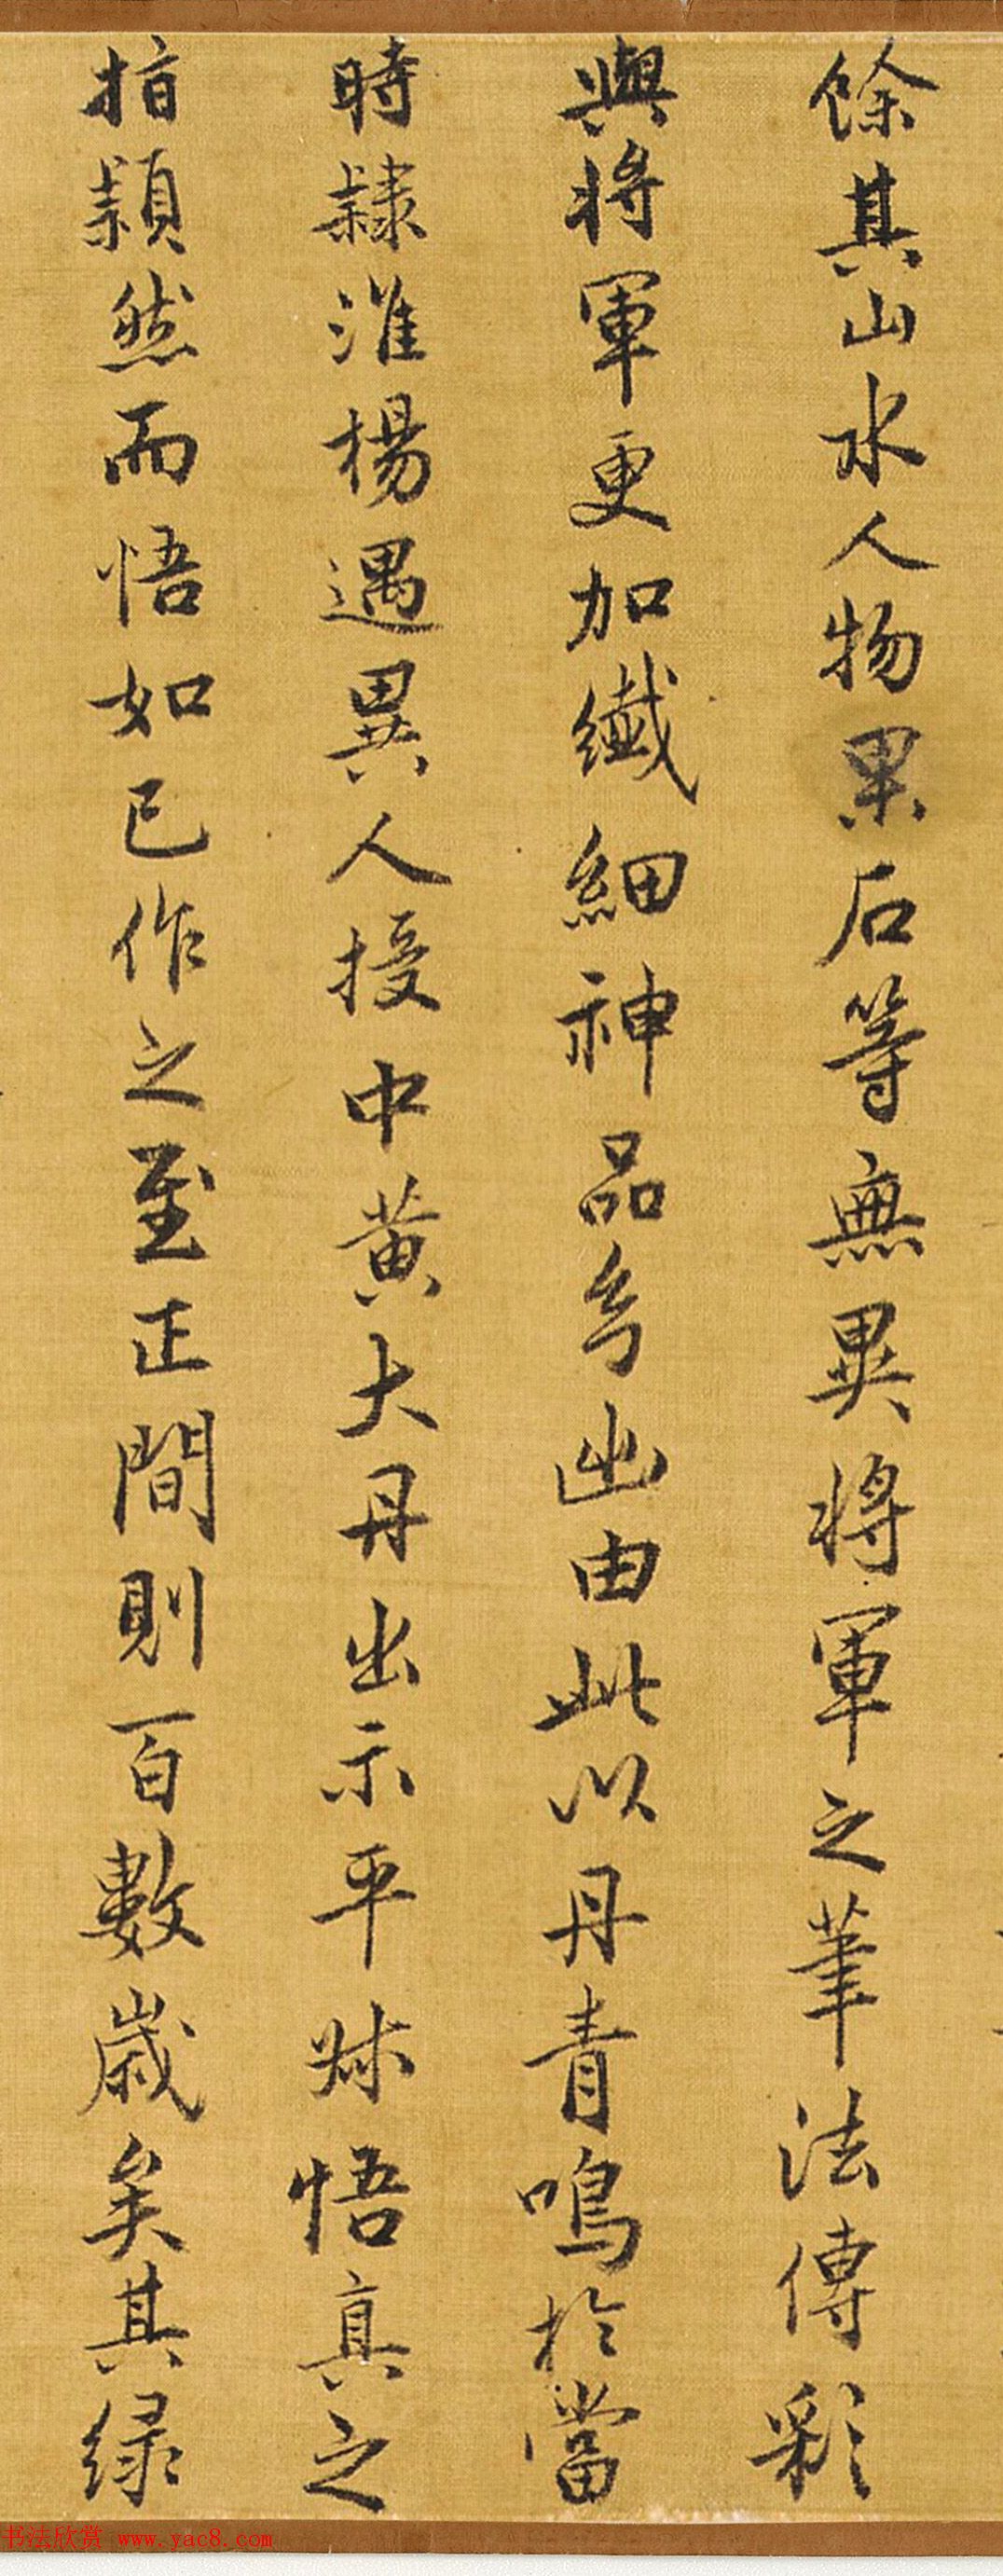 餘其山水人物果石等無異將軍之筆法傳彩
與將軍更加纖細神品矣幽由此以丹青鳴於當
時隸淮楊遇異人授中黃大丹出示平叔悟真之
指頴然而悟如己作之至正間則百數歲矣其綠
书法欣赏 www.yac8.com